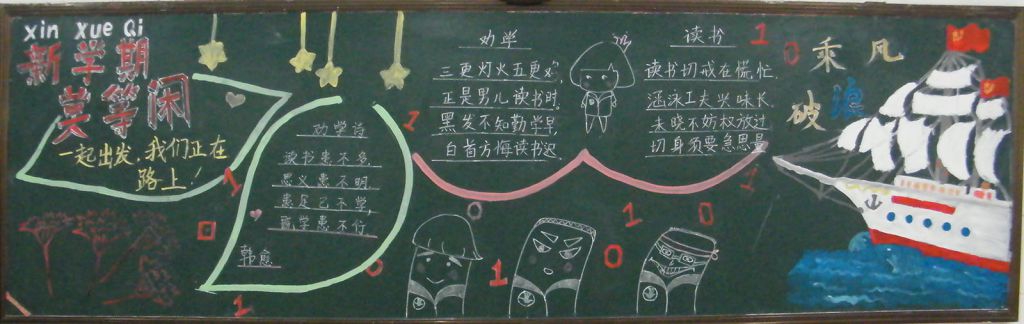 xin xue Qi
新学期
莫等闲
一起出发,我们正在
路上!
劝学诗
读书患不多,
思义患不明,
患足己不学,
既学患不行,
韩愈
劝学
三更灯火五更
正是男儿读书时,
黑发不知勤学早,
白首方悔读书迟.
读书
读书切戒在慌忙,
涵泳工夫兴味长.
未晓不妨权放过
切身须要急思量
乘 风
破 浪
1
0
1
1
0
1
0
0
1
0
1
0
1